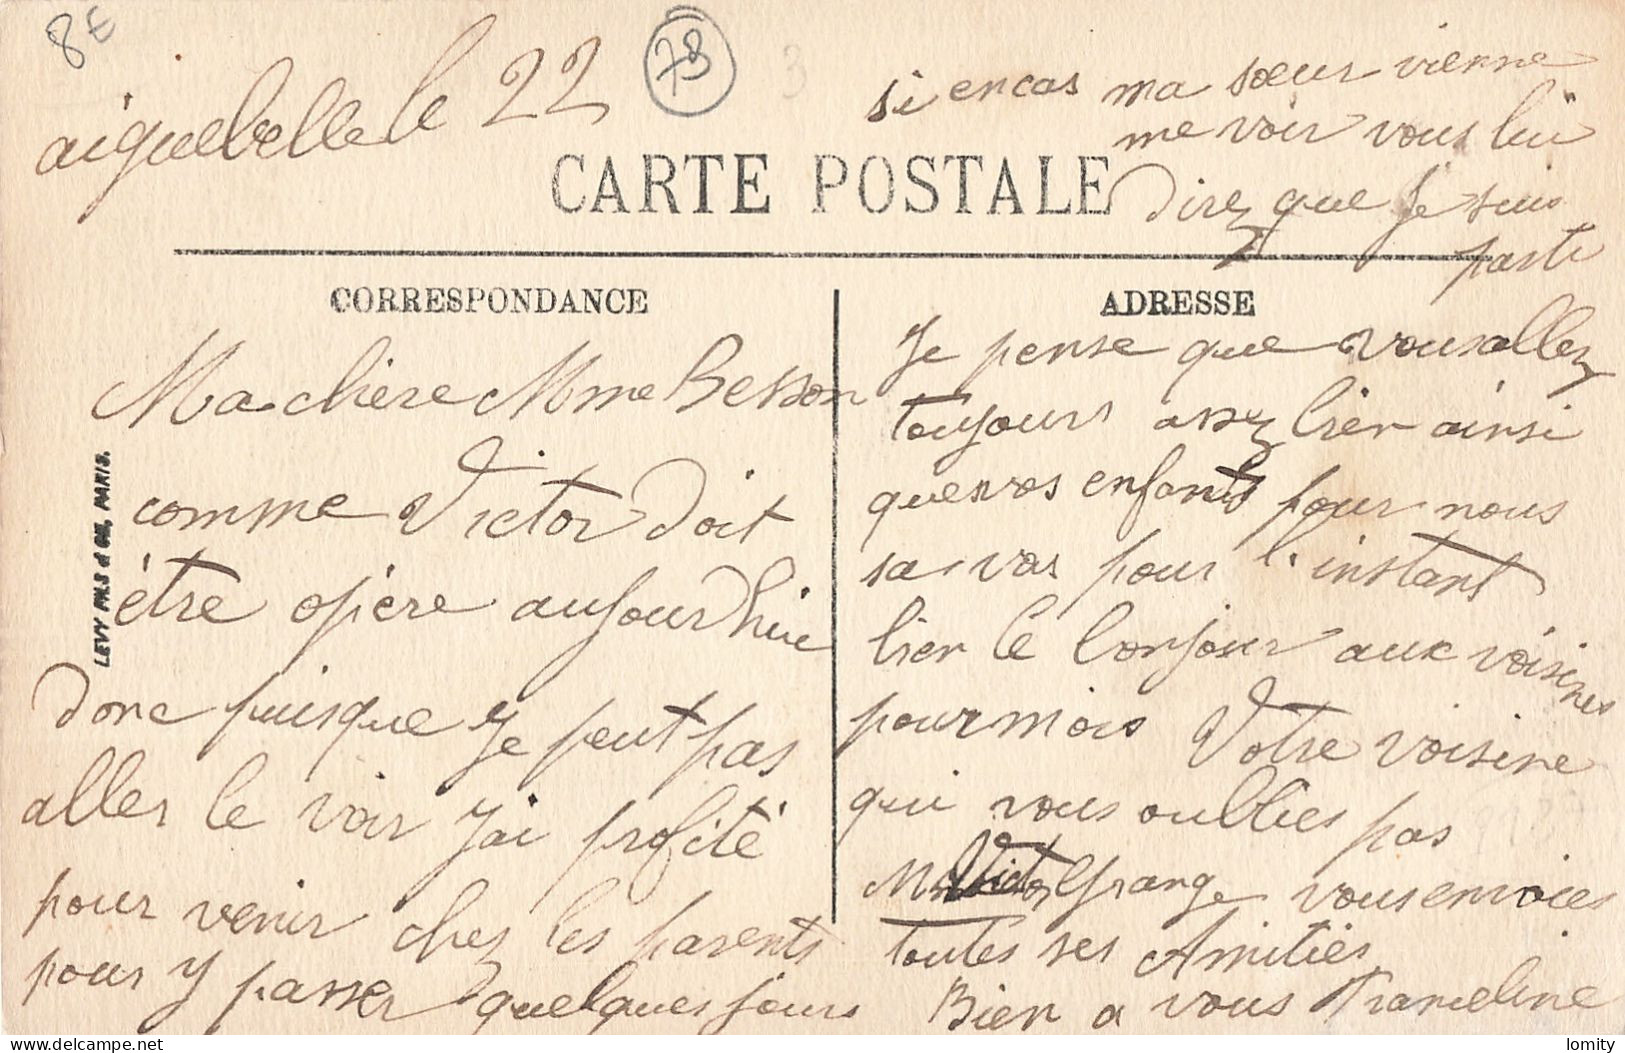 8€
73
3
aiguebelle le 22
si encas ma sœur vienne
me voir vous lui
direz que je suis
parti
CARTE POSTALE
CORRESPONDANCE
ADRESSE
LEVY FILS & CIE, PARIS.
Ma chère Mme Besson
comme Victor doit
être opère aujourdhui
donc puisque je peut pas
aller le voir j'ai profité
pour venir chez les parents
pour y passer quelques jours
Je pense que vous allez
toujours assez bien ainsi
que vos enfants pour nous
sa vas pour l'instant
bien le bonjour aux voisines
pour mois Votre voisine
qui vous oublies pas
Victor Grange vous envoies
toutes ses Amitiés
Bien a vous Franceline
lomity